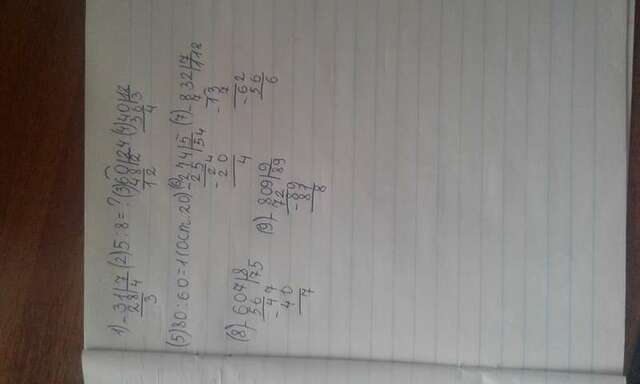 1) - 31 | 7 (2) 5 : 8 = ? (3) 60 | 24 (4) 40 | 12
28 | 4 48 | 2 36 | 3
3 12 4
(5) 80 : 60 = 1 (Ост. 20) (6) - 274 | 5 (7) - 832 | 7
25 | 54 7 | 118
- 24 - 13
20 7
4 - 62
56
6
(8) - 607 | 8 (9) - 809 | 9
56 | 75 72 | 89
- 47 - 89
40 81
7 8